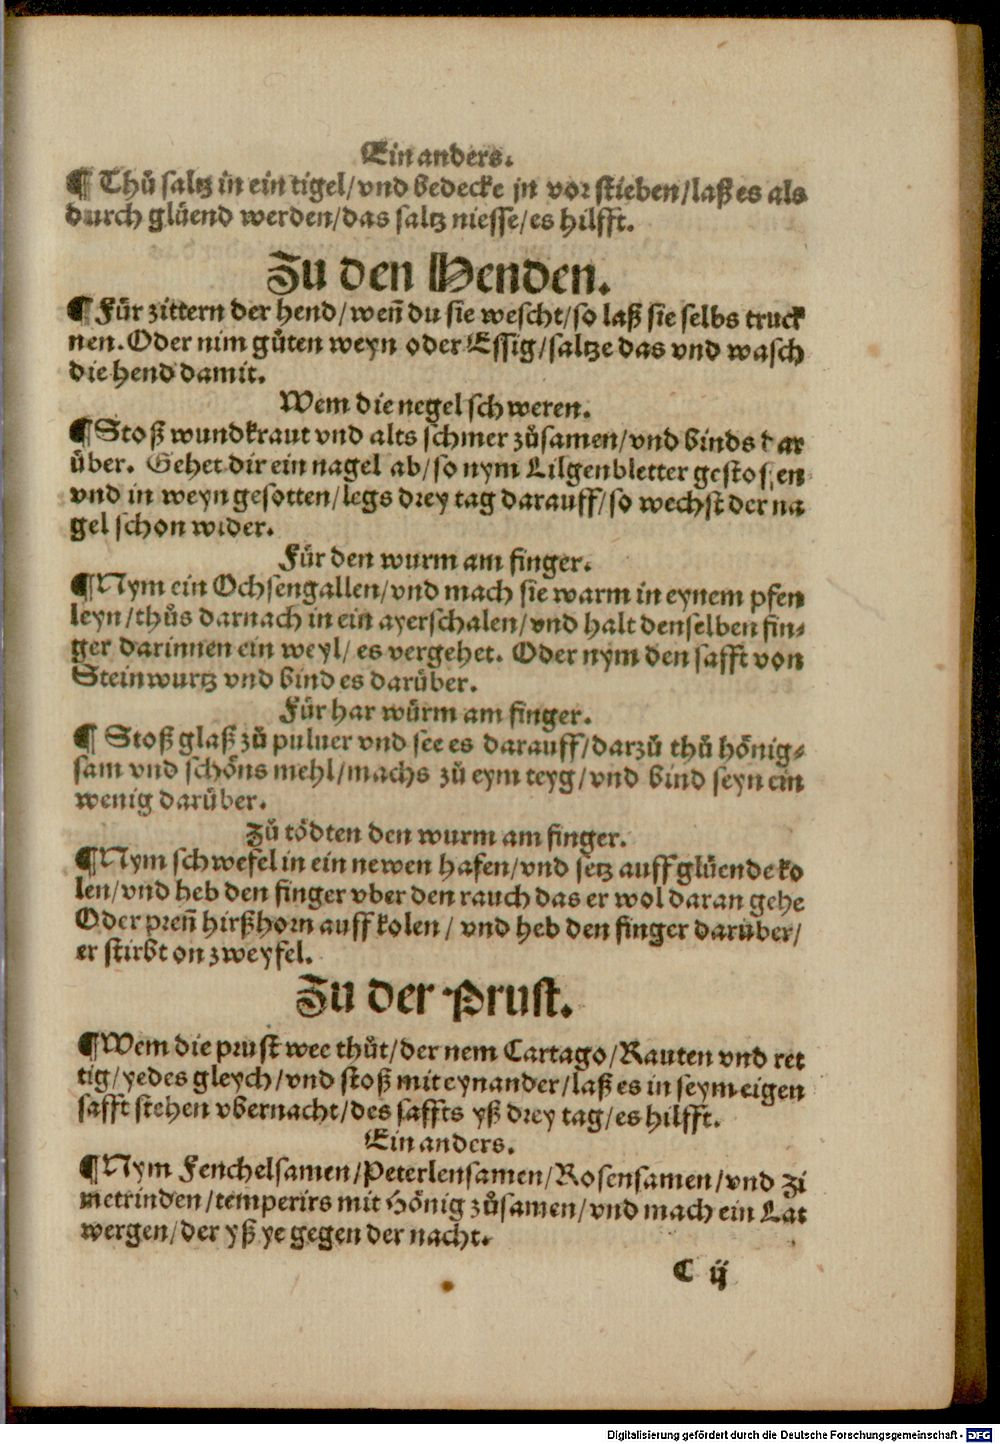 Ein anders.
¶ Thů saltz in ein tigel/vnd bedecke jn vor stieben/laß es als
durch glüend werden/das saltz niesse/es hilfft.
Zu den Henden.
¶ Für zittern der hend/weñ du sie wescht/so laß sie selbs truck
nen. Oder nim gůten weyn oder Essig/saltze das vnd wasch
die hend damit.
Wem die negel schweren.
¶ Stoß wundkraut vnd alts schmer zůsamen/vnd binds dar
über. Gehet dir ein nagel ab/so nym Lilgenbletter gestossen
vnd in weyn gesotten/legs drey tag darauff/so wechst der na
gel schon wider.
Für den wurm am finger.
¶ Nym ein Ochsengallen/vnd mach sie warm in eynem pfen
leyn/thůs darnach in ein ayerschalen/vnd halt denselben fin⸗
ger darinnen ein weyl/ es vergehet. Oder nym den safft von
Steinwurtz vnd bind es darüber.
Für har würm am finger.
¶ Stoß glaß zů puluer vnd see es darauff/darzů thů hönig⸗
sam vnd schöns mehl/machs zů eym teyg/vnd bind seyn ein
wenig darüber.
Zů tödten den wurm am finger.
¶ Nym schwefel in ein newen hafen/vnd setz auff glüende ko
len/vnd heb den finger vber den rauch das er wol daran gehe
Oder preñ hirßhorn auff kolen/ vnd heb den finger darüber/
er stirbt on zweyfel.
Zu der Prust.
¶ Wem die prust wee thůt/der nem Cartago/Rauten vnd ret
tig/yedes gleych/vnd stoß mit eynander/laß es in seym eigen
safft stehen vbernacht/des saffts yß drey tag/es hilfft.
Ein anders.
¶ Nym Fenchelsamen/Peterlensamen/Rosensamen/vnd zi
metrinden/temperirs mit Hönig zůsamen/vnd mach ein Lat
wergen/der yß ye gegen der nacht.
C ij
Digitalisierung gefördert durch die Deutsche Forschungsgemeinschaft - DFG